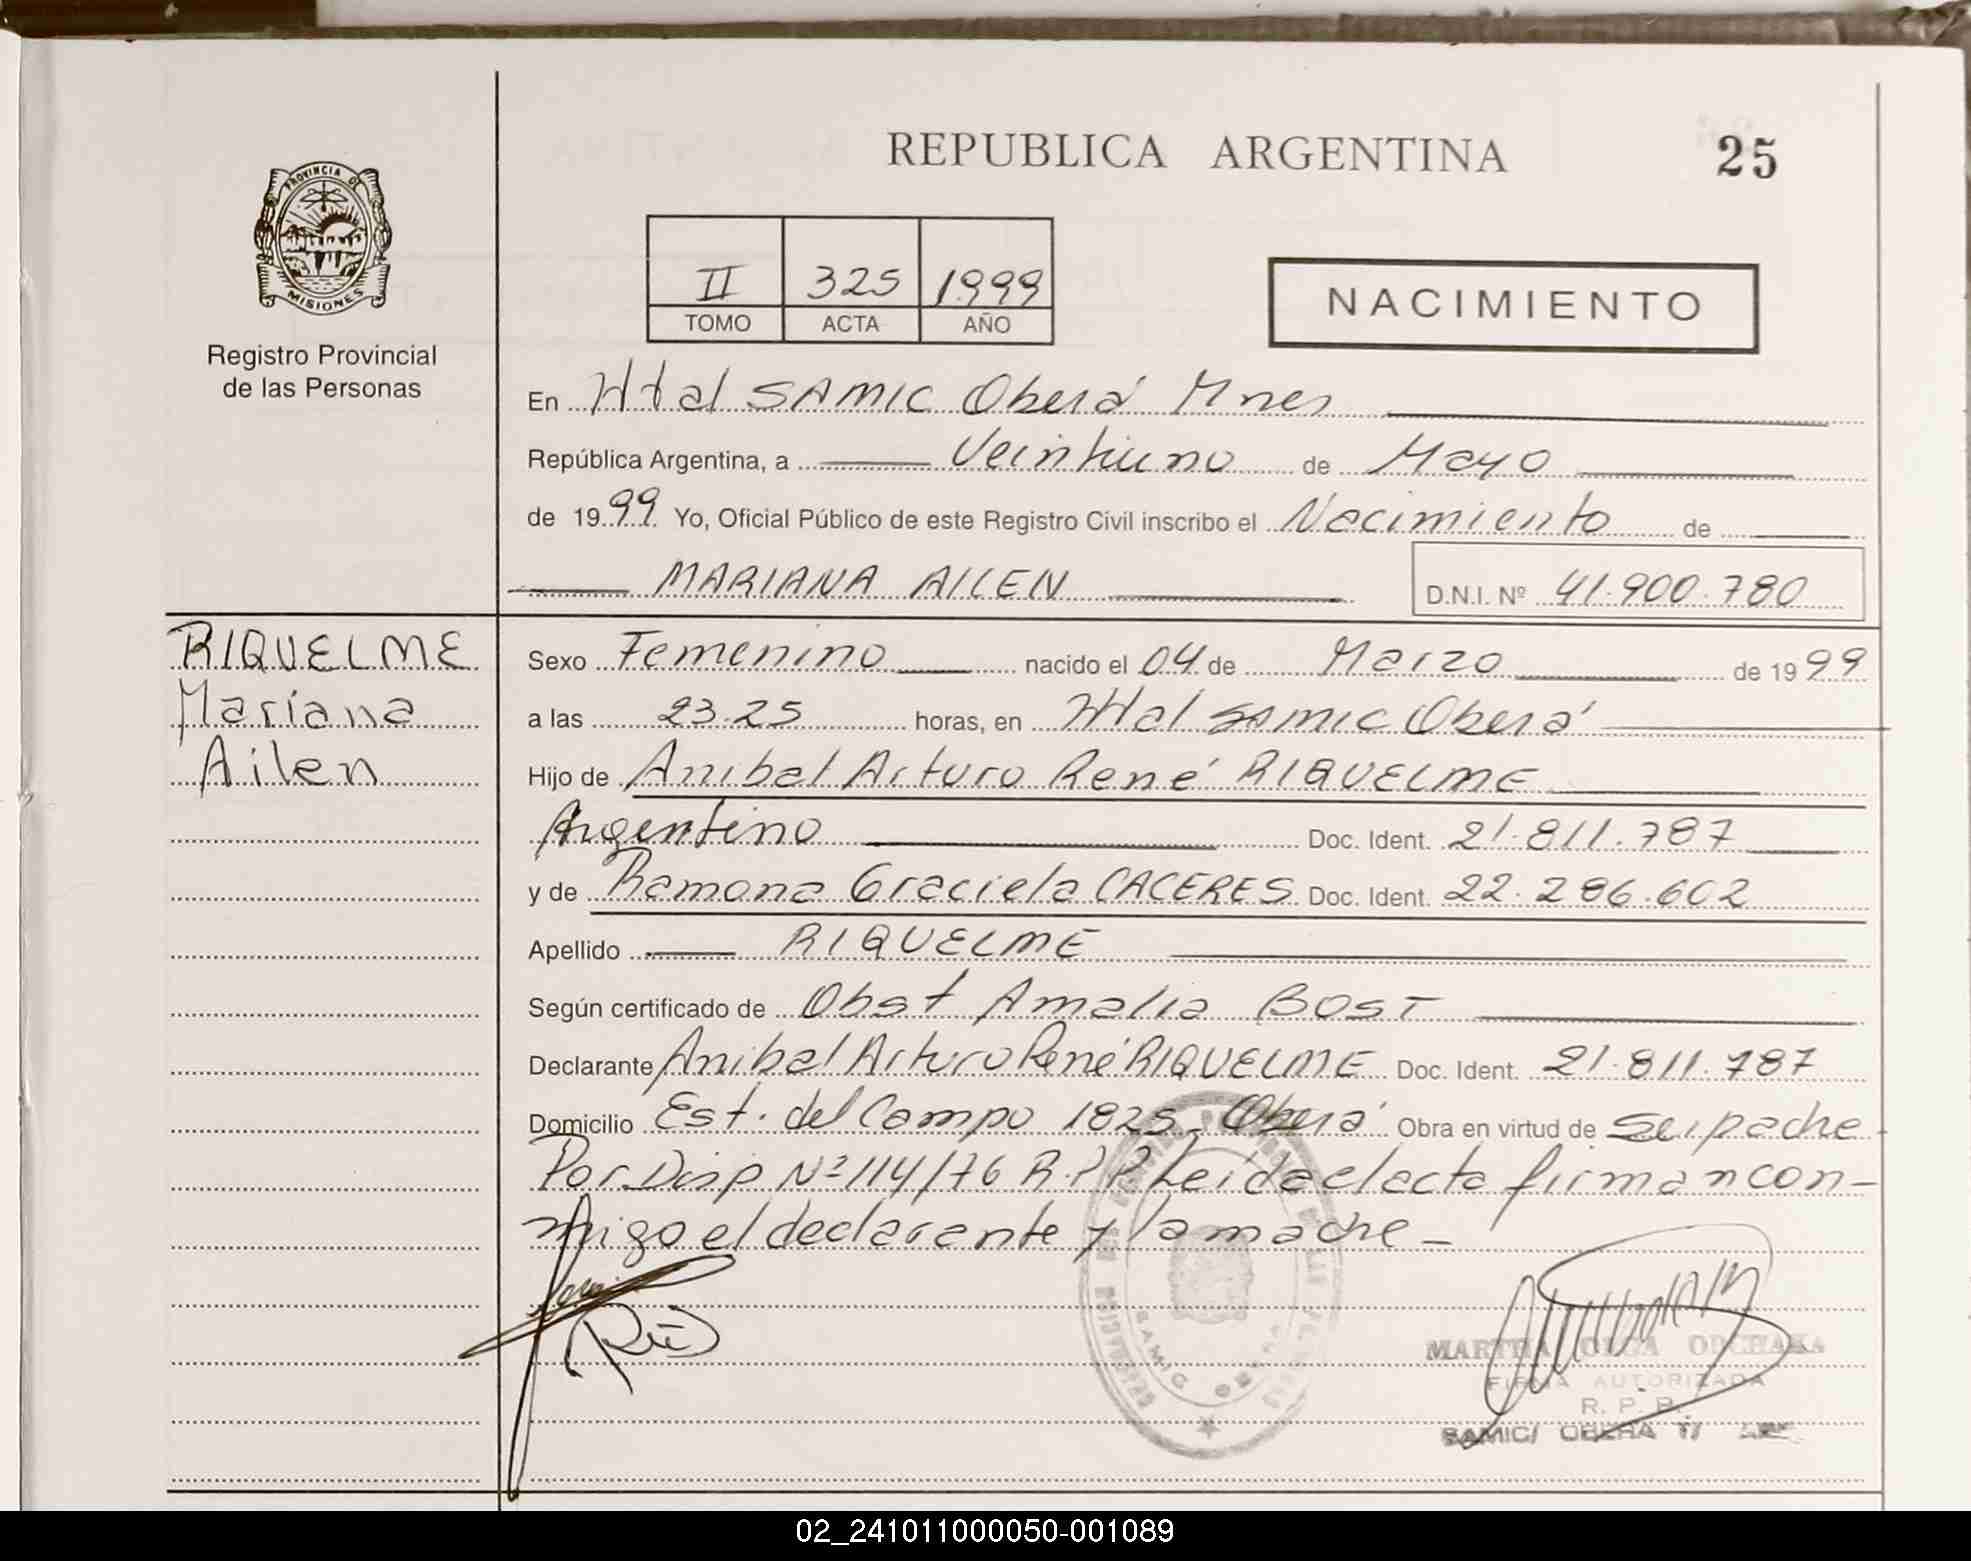 REPUBLICA ARGENTINA
25
PROVINCIA DE
MISIONES
Registro Provincial
de las Personas
II 325 1999
TOMO ACTA AÑO
NACIMIENTO
En Htal SAMIC Oberá Mnes
República Argentina, a Veintiuno de Mayo
de 1999 Yo, Oficial Público de este Registro Civil inscribo el Nacimiento de
MARIANA AILEN D.N.I. Nº 41.900.780
RIQUELME
Mariana
Ailen
Sexo Femenino nacido el 04 de Marzo de 1999
a las 23.25 horas, en Htal SAMIC Oberá
Hijo de Anibal Arturo René RIQUELME
Argentino Doc. Ident. 21.811.787
y de Ramona Graciela CACERES Doc. Ident. 22.286.602
Apellido RIQUELME
Según certificado de Obst Amalia BOST
Declarante Anibal Arturo René RIQUELME Doc. Ident. 21.811.787
Domicilio Est. del Campo 1825 Oberá Obra en virtud de ser padre
Por Disp Nº 114/76 R.P.P Leída el acta firman con-
migo el declarante y la madre -
SAMIC OBERA
MARTHA OLGA
FIRMA AUTORIZADA
R. P. P.
SAMIC/ OBERA
02_241011000050-001089